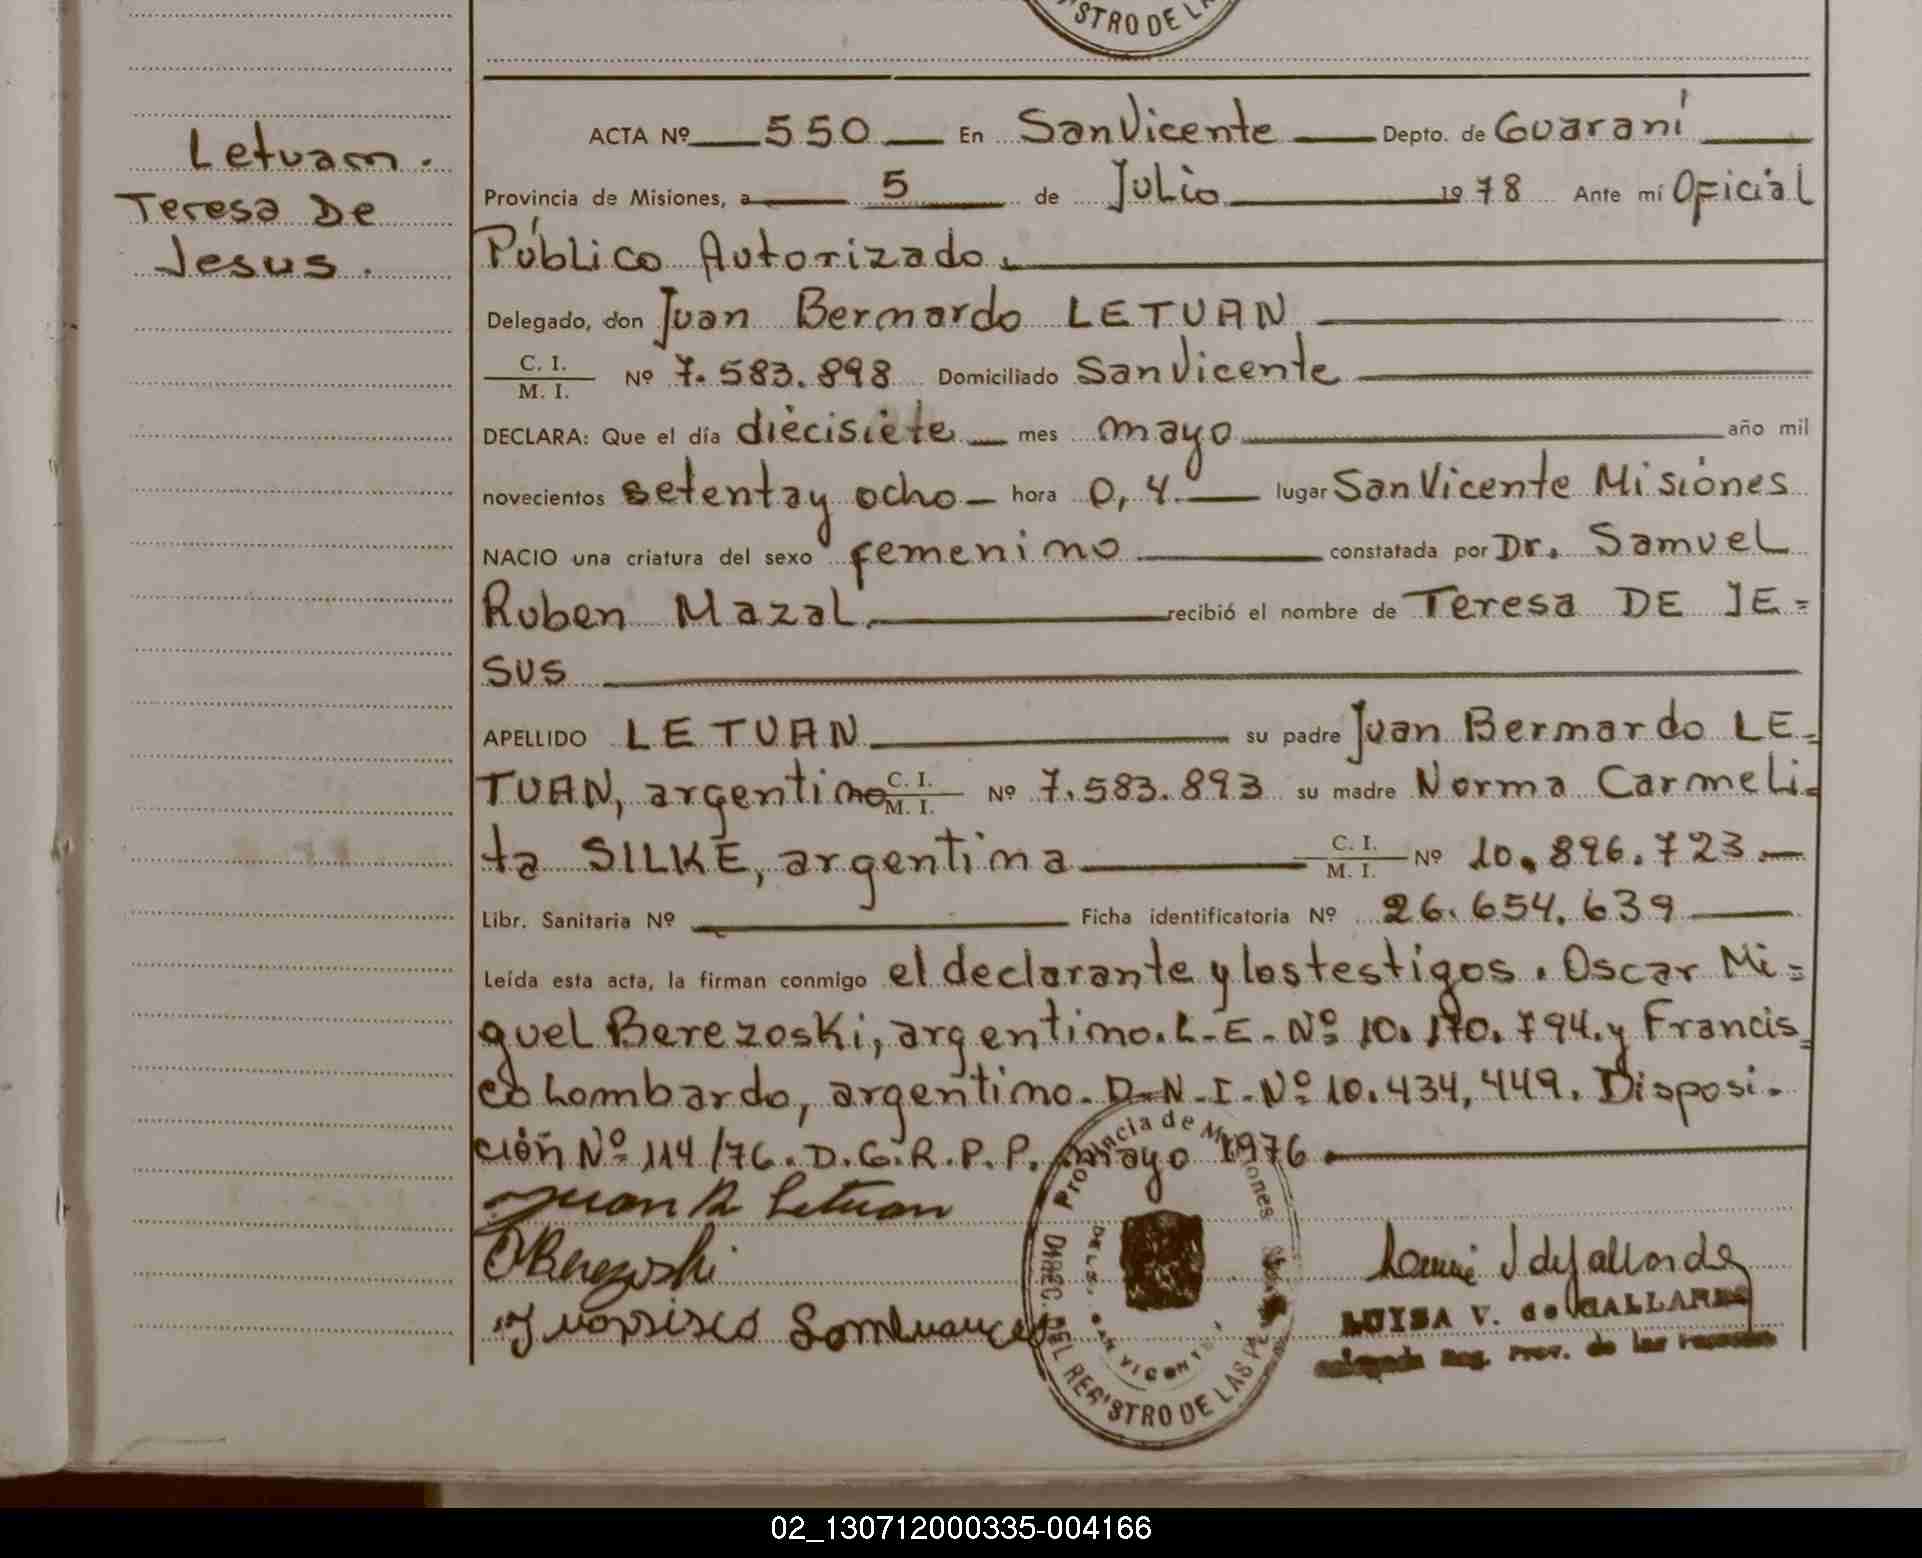 STRO DE LA
Letuam.
Teresa De
Jesus.
ACTA Nº 550 En San Vicente Depto. de Guaraní
Provincia de Misiones, a 5 de Julio 1978 Ante mí Oficial
Público Autorizado.
Delegado, don Juan Bernardo LETUAN
C. I.
M. I. Nº 7.583.898 Domiciliado San Vicente
DECLARA: Que el día diecisiete mes mayo año mil
novecientos setenta y ocho hora 0,4. lugar San Vicente Misiones
NACIO una criatura del sexo femenino constatada por Dr. Samuel
Ruben Mazal. recibió el nombre de Teresa DE JE=
SUS
APELLIDO LETUAN su padre Juan Bernardo LE-
TUAN, argentino C. I. M. I. Nº 7.583.893 su madre Norma Carmeli-
ta SILKE, argentina C. I. M. I. Nº 10.896.723
Libr. Sanitaria Nº Ficha identificatoria Nº 26.654.639
Leída esta acta, la firman conmigo el declarante y los testigos. Oscar Mi=
guel Berezoski, argentino. L-E-Nº 10.170.794. y Francis=
co Lombardo, argentino. D-N-I-Nº 10.434,449. Disposi-
ción Nº 114/76. D.G.R.P.P. mayo 1976
Juan B Letuan
OBerezoski
Provincia de Misiones
DIREC. DEL REGISTRO DE LAS
SAN VICENTE
LUISA V. de GALLARDO
Reg. Prov. de las Personas
02_130712000335-004166